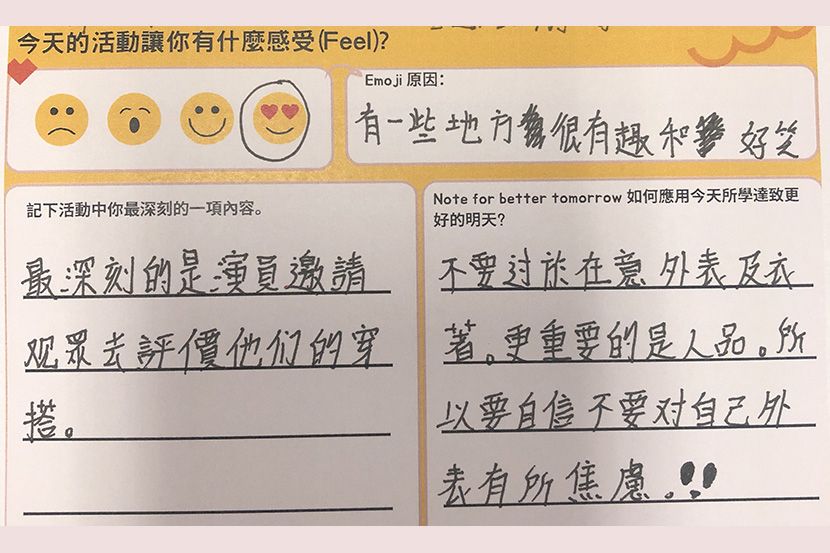 今天的活動讓你有什麼感受(Feel)?
Emoji 原因：
有一些地方很有趣和好笑
記下活動中你最深刻的一項內容。
最深刻的是演員邀請
观眾去評價他们的穿
搭。
Note for better tomorrow 如何應用今天所學達致更
好的明天?
不要过於在意外表及衣
著。更重要的是人品。所
以要自信不要对自己外
表有所焦慮。!!